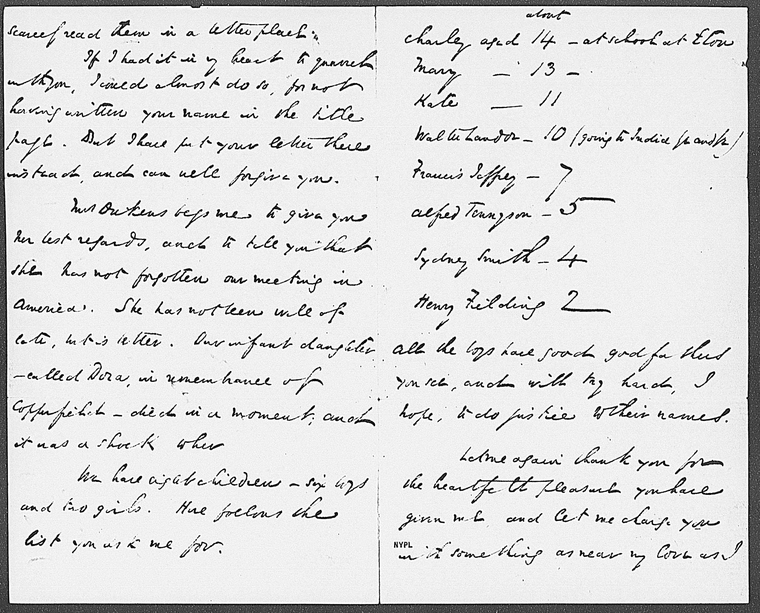 scarcely read them in a better place.
If I had it in my heart to quarrel
with you, I could almost do so, for not
having written your name in the title
page. But I have put your letter there
instead, and can well forgive you.
Mrs Dickens begs me to give you
her best regards, and to tell you that
she has not forgotten our meeting in
America. She has not been well of
late, but is better. Our infant daughter
– called Dora, in remembrance of
Copperfield – died in a moment, and
it was a shock to her
We have eight children – six boys
and two girls. Here follows the
list you ask me for.
about
Charley aged 14 – at school at Eton
Mary – 13 –
Kate – 11
Walter Landor – 10 (going to India
Francis Jeffrey – 7
Alfred Tennyson – 5
Sydney Smith – 4
Henry Fielding 2
All the boys have good godfathers
you see, and will try hard, I
hope, to do justice to their names.
Let me again thank you for
the heartfelt pleasure you have
given me and let me charge you
NYPL
with something as near my love as I